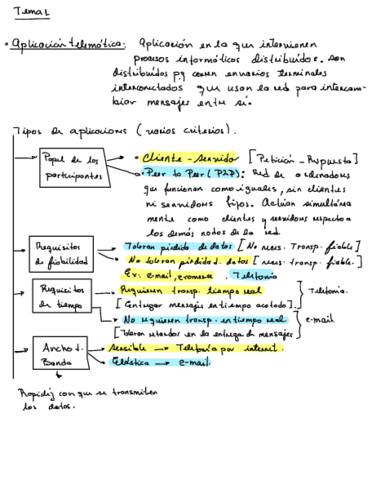 Tema 1
• Aplicación telemática: Aplicación en la que intervienen
procesos informáticos distribuidos. Son
distribuidos pq corren en varios terminales
interconectados que usan la red para intercam-
biar mensajes entre si.
Tipos de aplicaciones (varios criterios).
Papel de los
participantes
• Cliente-servidor [Petición-Respuesta]
• Peer to Peer (P2P): Red de ordenadores
que funcionan como iguales, sin clientes
ni servidores fijos. Actúan simultánea
mente como clientes y servidores respecto a
los demás nodos de la red.
Requisitos
de fiabilidad
Toleran pérdida de datos [No neces. transp. fiable]
No toleran pérdida d. datos [neces. transp. fiable.]
Ex: e-mail, . Telefonía
Requisitos
de tiempo
Requieren transp. tiempo real
[Entregar mensajes en tiempo acotado]
Telefonía.
No requieren transp. en tiempo real
[Toleran retardos en la entrega de mensajes]
e-mail
Ancho d.
Banda
Sensible → Telefonía por internet.
Elástica → e-mail.
Rapidez con que se transmiten
los datos.